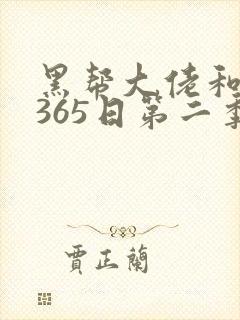 黑帮大佬和
365日第二季
賈正蘭